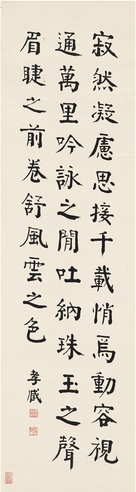 寂然凝慮思接千載悄焉動容視
通萬里吟詠之間吐納珠玉之聲
眉睫之前卷舒風雲之色
孝臧